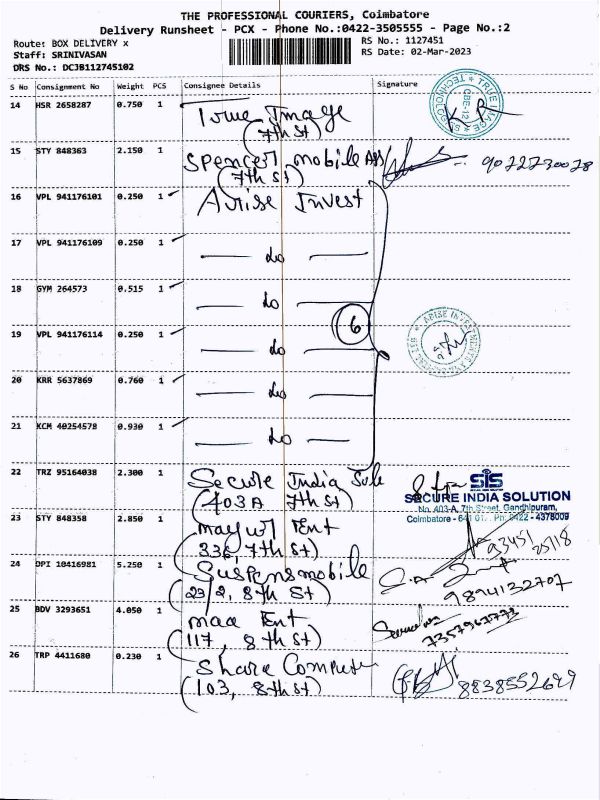 THE PROFESSIONAL COURIERS, Coimbatore
Delivery Runsheet - PCX - Phone No.:0422-3505555 - Page No.:2
Route: BOX DELIVERY x
RS No.: 1127451
Staff: SRINIVASAN
RS Date: 02-Mar-2023
DRS No.: DC3B112745102
S No Consignment No Weight PCS Consignee Details Signature
14 HSR 2658287 0.750 1 True Image
(7th St)
TRUE IMAGE TECHNOLOGIES
CBE-12
15 STY 848363 2.150 1 Spencer mobile
(7th St)
9072230028
16 VPL 941176101 0.250 1 Arise Invest
17 VPL 941176109 0.250 1 — do —
18 GYM 264573 0.515 1 — do —
6
19 VPL 941176114 0.250 1 — do —
20 KRR 5637869 0.760 1 — do —
21 KCM 40254578 0.930 1 — do —
22 TRZ 95164038 2.300 1 Secure India Sole
(403A 7th St)
SIS
SECURE INDIA SOLUTION
No. 403-A, 7th Street, Gandhipuram,
Coimbatore - 641 01. Ph: 0422 - 4378009
23 STY 848358 2.850 1 mayur Tent
336, 7th St)
93451
25118
24 OPI 10416981 5.250 1 Suspens mobile
(29/2, 8th St)
9894132707
25 BDV 3293651 4.050 1 maa Tent
(117, 8th St)
7357961773
26 TRP 4411680 0.230 1 Share Compute
(103, 8th St)
8838552699